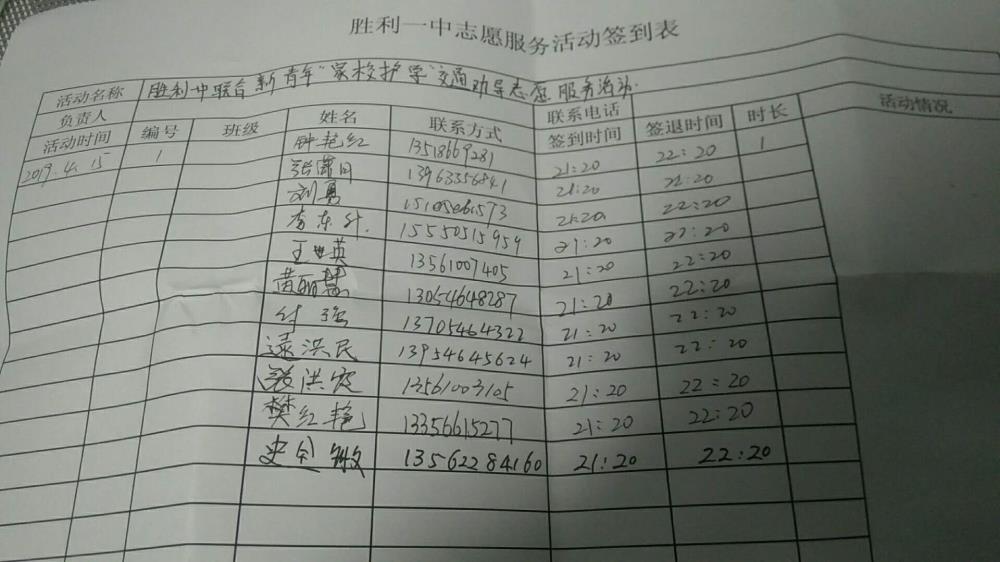 胜利一中志愿服务活动签到表
活动名称 胜利一中联合新青年“家校护学”交通劝导志愿服务活动.
负责人 联系电话
活动时间 编号 班级 姓名 联系方式 签到时间 签退时间 时长 活动情况
2019.4.15 1 钟艳红 13518669281 21:20 22:20 1
13963356841 21:20 22:20
刘勇 15105461573 21:20 22:20
李东升. 15550515959 21:20 22:20
王世英 13561007405 21:20 22:20
黄丽慧 13054648287 21:20 22:20
付强 13705464322 21:20 22:20
逯洪民 13954645624 21:20 22:20
张洪宾 13561003105 21:20 22:20
樊红艳 13356615277 21:20 22:20
史国敏 13562284160 21:20 22:20